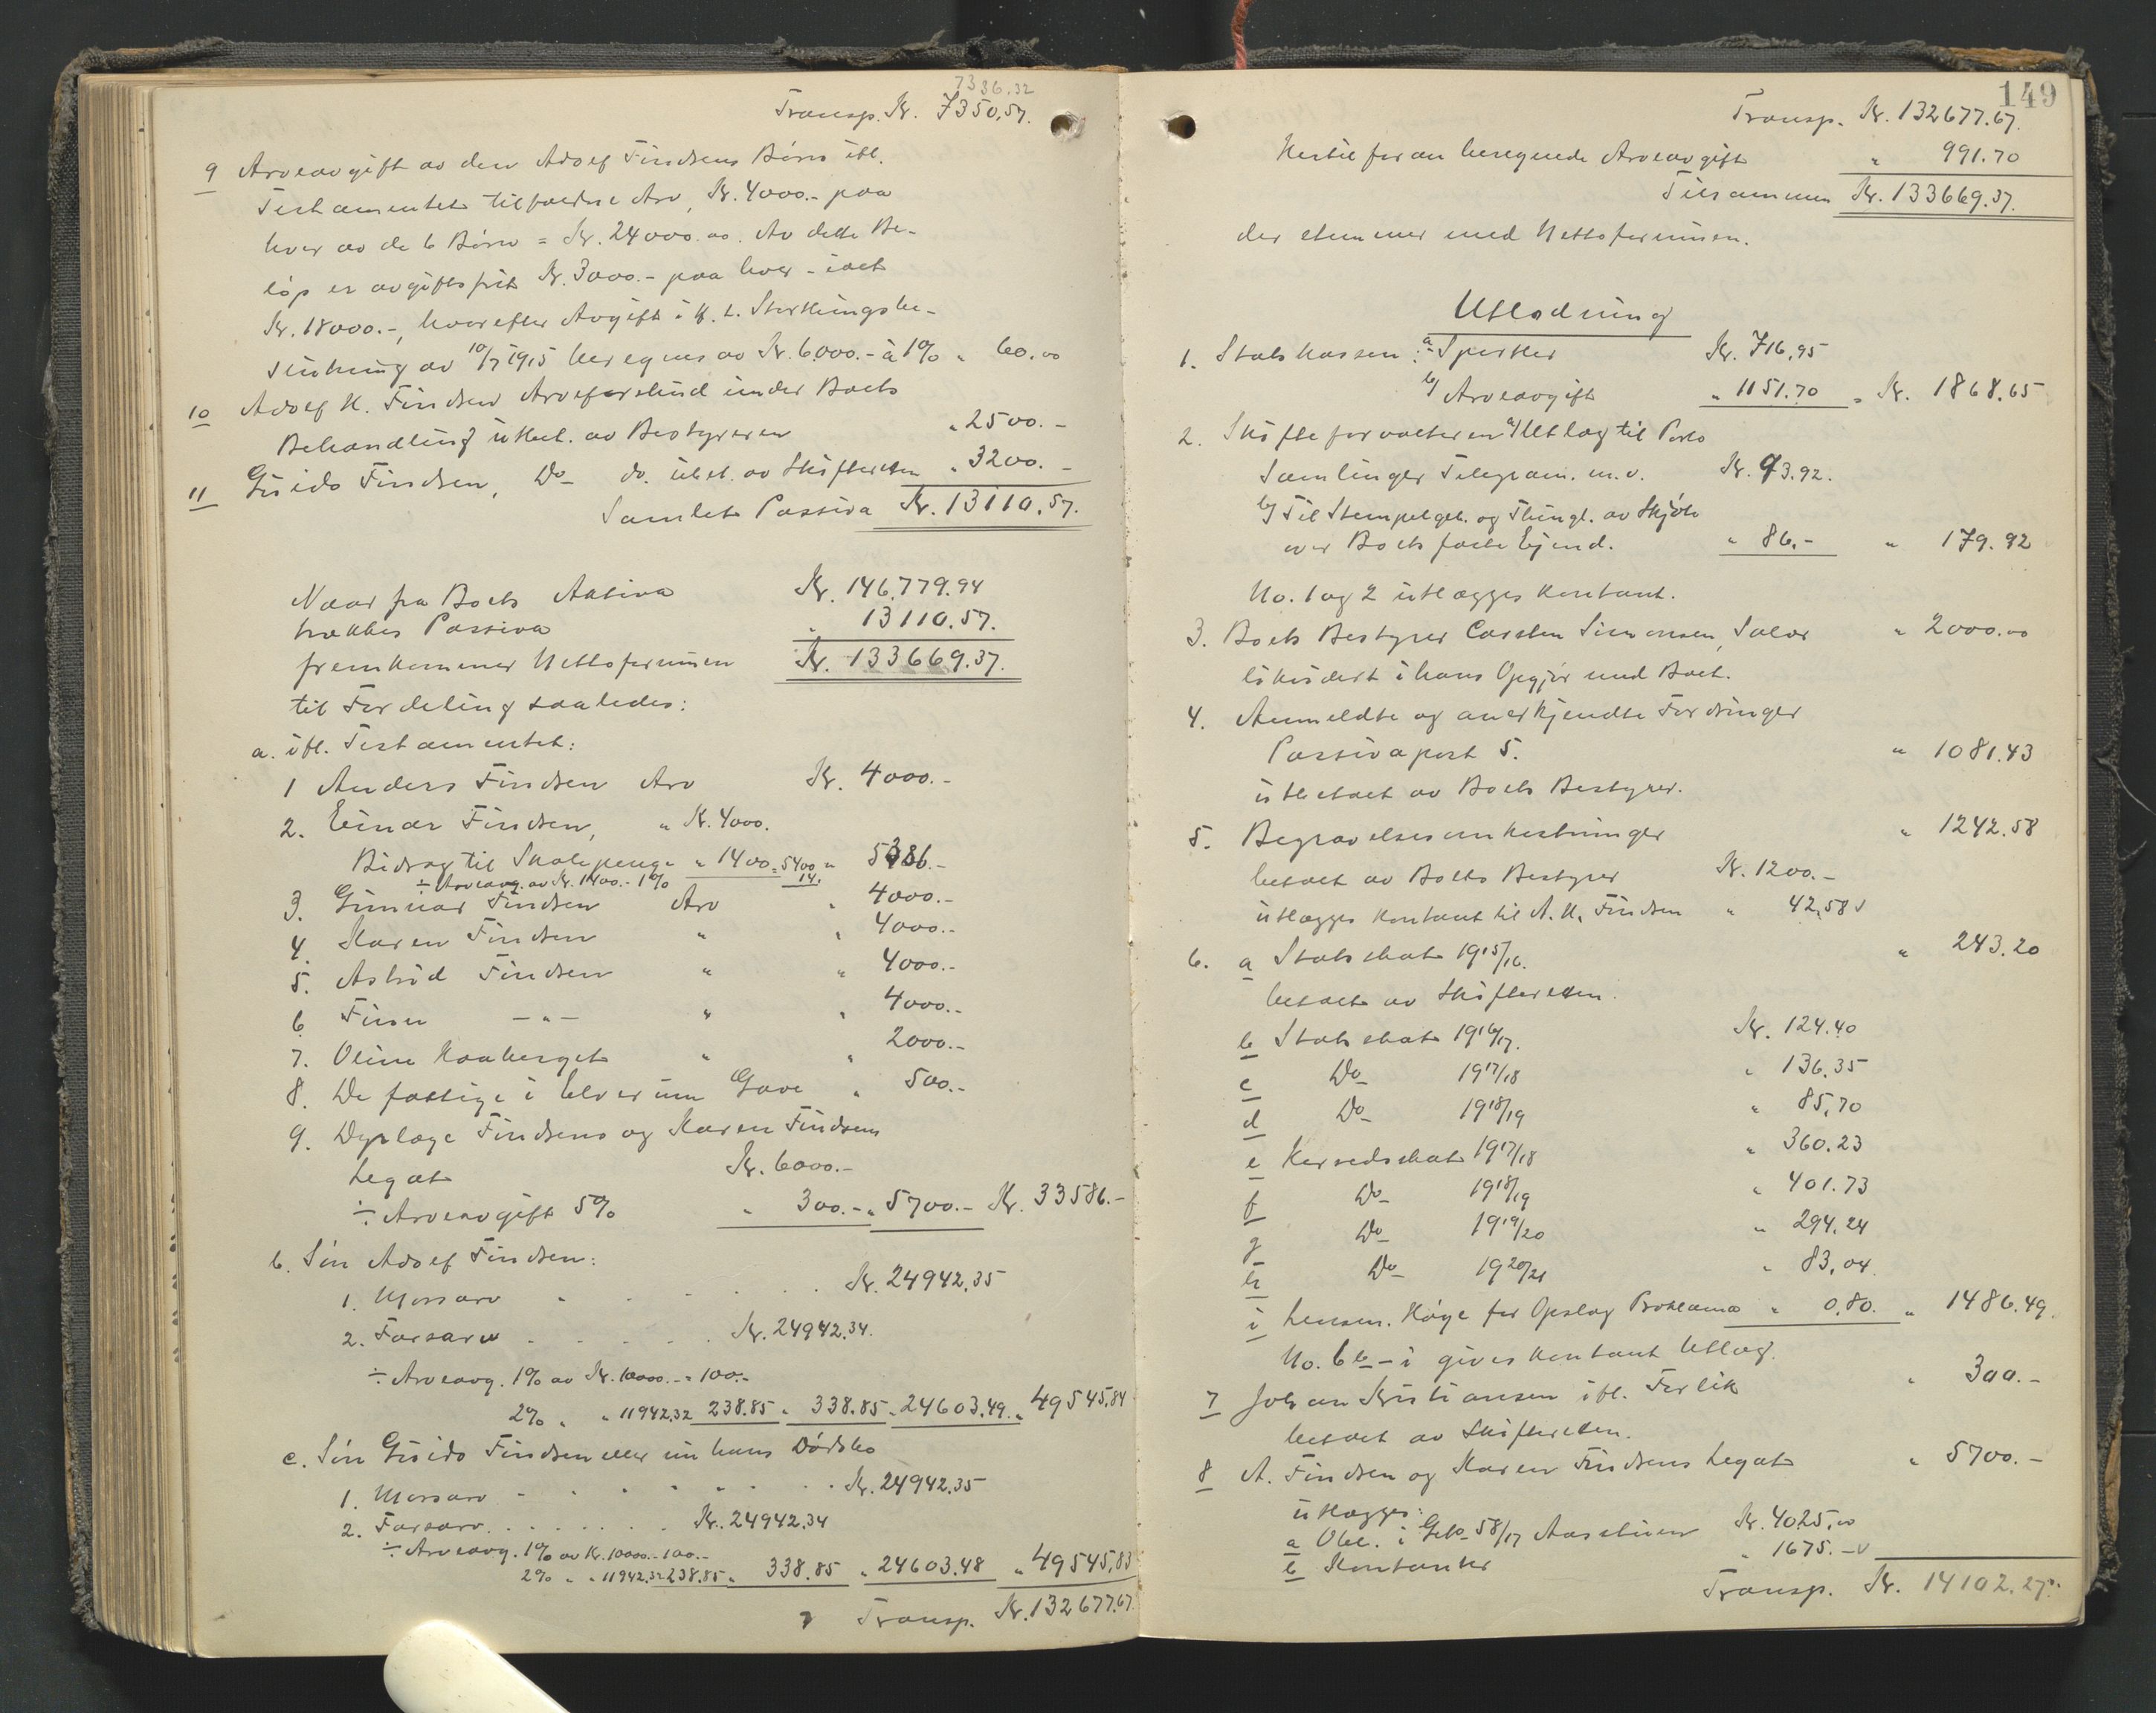 7336.32
Transp. Kr. 7350,57.
9 Arveavgift av den Adolf Findsens Børn ifl.
Testamentet tilfaldne Arv, Kr. 4000.- paa
hver av de 6 Børn = Kr. 24000.00. Av dette Be-
løp er avgiftsfrit Kr. 3000.- paa hver - ialt
Kr. 18000.-, hvorefter Avgift i h. t. Storthingsbe-
slutning av 10/7 1915 beregnes av Kr. 6000.- à 1% " 60.00
10 Adolf H. Findsen Arveforskud under Boets
Behandling utbet. av Bestyreren " 2500.-
11 Guido Findsen, Do do. utbet. av Skifteretten " 3200.-
Samlet Passiva Kr. 13110.57.
Naar fra Boets Aktiva Kr. 146,779.94
trækkes Passiva " 13110.57.
fremkommer Nettoformuen Kr. 133669.37.
til Fordeling saaledes:
a. ifl. Testamentet:
1 Anders Findsen Arv Kr. 4000.-
2. Einar Findsen, " Kr. 4000.
Bidrag til Skolepenge " 1400 = 5400 " 5386.-
÷ Arveavg. av Kr. 1400.- 1% 14.
3. Gunnar Findsen Arv " 4000.-
4. Karen Findsen " " 4000.-
5. Astrid Findsen " " 4000.-
6 Finn -"- " " 4000.-
7. Oline Haaberget " " 2000.-
8. De fattige i Elverum Gave " 500.-
9. Dyrlæge Findsens og Karen Findsens
Legat Kr. 6000.-
÷ Arveavgift 5% " 300.- " 5700.- Kr. 33586.-
b. Søn Adolf Findsen:
1. Morsarv " Kr. 24942,35
2. Farsarv Kr. 24942.34.
÷ Arveavg. 1% av Kr. 10000.- = 100.-
2% " " 11942,32 238.85 " 338.85 " 24603,49 " 49545,84
c. Søn Guido Findsen eller nu hans Dødsbo
1. Morsarv Kr. 24942,35
2. Farsarv Kr. 24942,34
÷ Arveavg. 1% av Kr. 10000.- 100.-
2% " " 11942,32 238,85 " 338.85 " 24603,48 " 49545,83
Transp. Kr. 132677.67
149
Transp. Kr. 132677.67.
Hertil foran beregnede Arveavgift " 991.70
Tilsammen Kr. 133669.37.
der stemmer med Nettoformuen.
Utlodning
1. Statskassen: a Sportler Kr. 716,95
b/ Arveavgift " 1151.70 = Kr. 1868.65
2. Skifteforvalteren a/ Utlæg til Porto
Samlinger Telegram. m.v. Kr. 93.92.
b/ Til Stempelgeb. og Thingl. av Skjøte
over Boets faste Ejend. " 86.- " 179.92
No. 1 og 2 utlægges kontant.
3. Boets Bestyrer Carsten Simonsen, Salær " 2000.00
likvidert i hans Opgjør med Boet.
4. Anmeldte og anerkjendte Fordringer
Passivapost 5. " 1081.43
utbetalt av Boets Bestyrer.
5. Begravelsesomkostninger " 1242.58
betalt av Boets Bestyrer Kr. 1200.-
utlægges kontant til A. H. Findsen " 42,58 v
6. a Statsskat 1915/16. " 243.20
betalt av Skifteretten.
b Statsskat 1916/17. Kr. 124.40
c Do 1917/18 " 136.35
d Do 1918/19 " 85,70
e Herredsskat 1917/18 " 360.23
f Do 1918/19 " 401.73
g Do 1919/20 " 294.24
h Do 1920/21 " 83,04
i Lensm. Høye for Opslag Proklama " 0,80. " 1486.49.
No. 6 b - i gives kontant Utlæg.
7 Johan Kristiansen ifl. Forlik " 300.-
betalt av Skifteretten.
8 A. Findsen og Karen Findsens Legat " 5700.-
utlægges:
a Obl. i Gbr. 58/17 Kr. 4025,00
b Kontanter " 1675.- v
Transp. Kr. 14102.27.